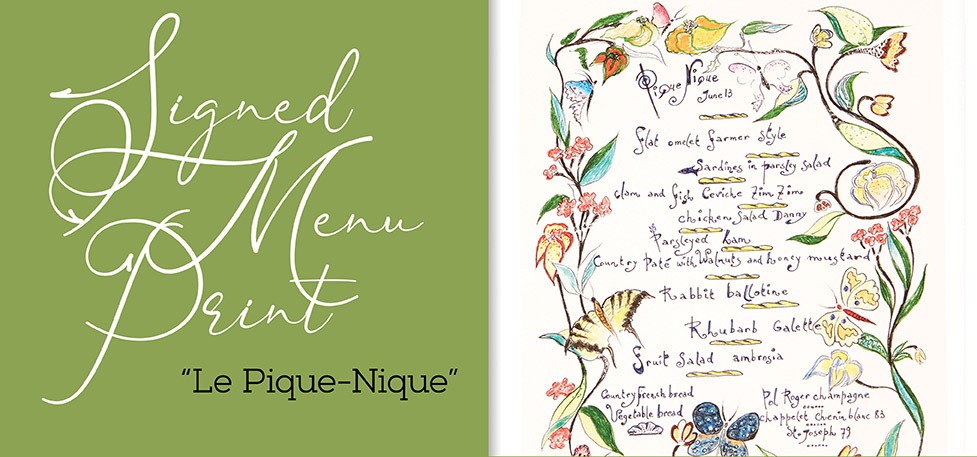 Signed
Menu
Print
“Le Pique-Nique”
Pique Nique
June 13
flat omelet farmer style
Sardines in parsley salad
clam and fish Ceviche Zim Zimo
chicken Salad Danny
Parsleyed ham
Country Paté with Walnuts and honey moustard
Rabbit ballotine
Rhubarb Galette
fruit Salad ambrosia
Country french bread
Vegetable bread
Pol Roger champagne
chappelet chenin blanc 83
St. Joseph 79